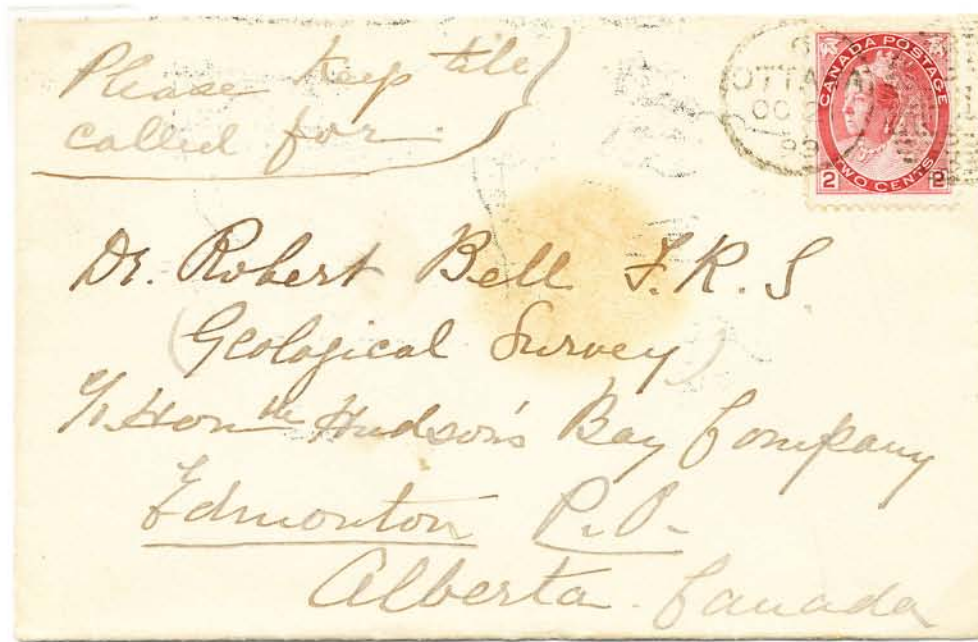 Please keep till
called for
OTTAWA
OC 2
CANADA POSTAGE
TWO CENTS
2 2
Dr. Robert Bell F.R.S.
(Geological Survey)
c/o Honble Hudson's Bay Company
Edmonton P.O.
Alberta. Canada